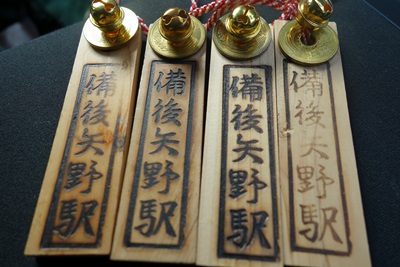 備後矢野駅
備後矢野駅
備後矢野駅
備後矢野駅